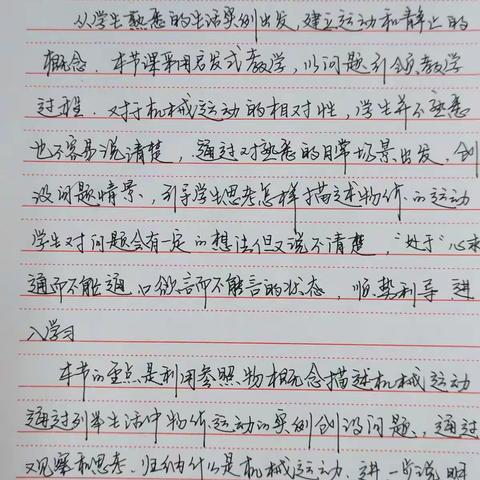 从学生熟悉的生活实例出发,建立运动和静止的
概念。本节课采用启发式教学,以问题引领教学
过程。对于机械运动的相对性,学生并不熟悉
也不容易说清楚,通过对熟悉的日常场景出发,创
设问题情景,引导学生思考怎样描述物体的运动
学生对问题会有一定的想法但又说不清楚,"处于"心求
通而不能通口欲言而不能言的状态,顺势利导进
入学习
本节的重点是利用参照物概念描述机械运动
通过列举生活中物体运动的实例创设问题,通过
观察和思考,归纳什么是机械运动、进一步说明